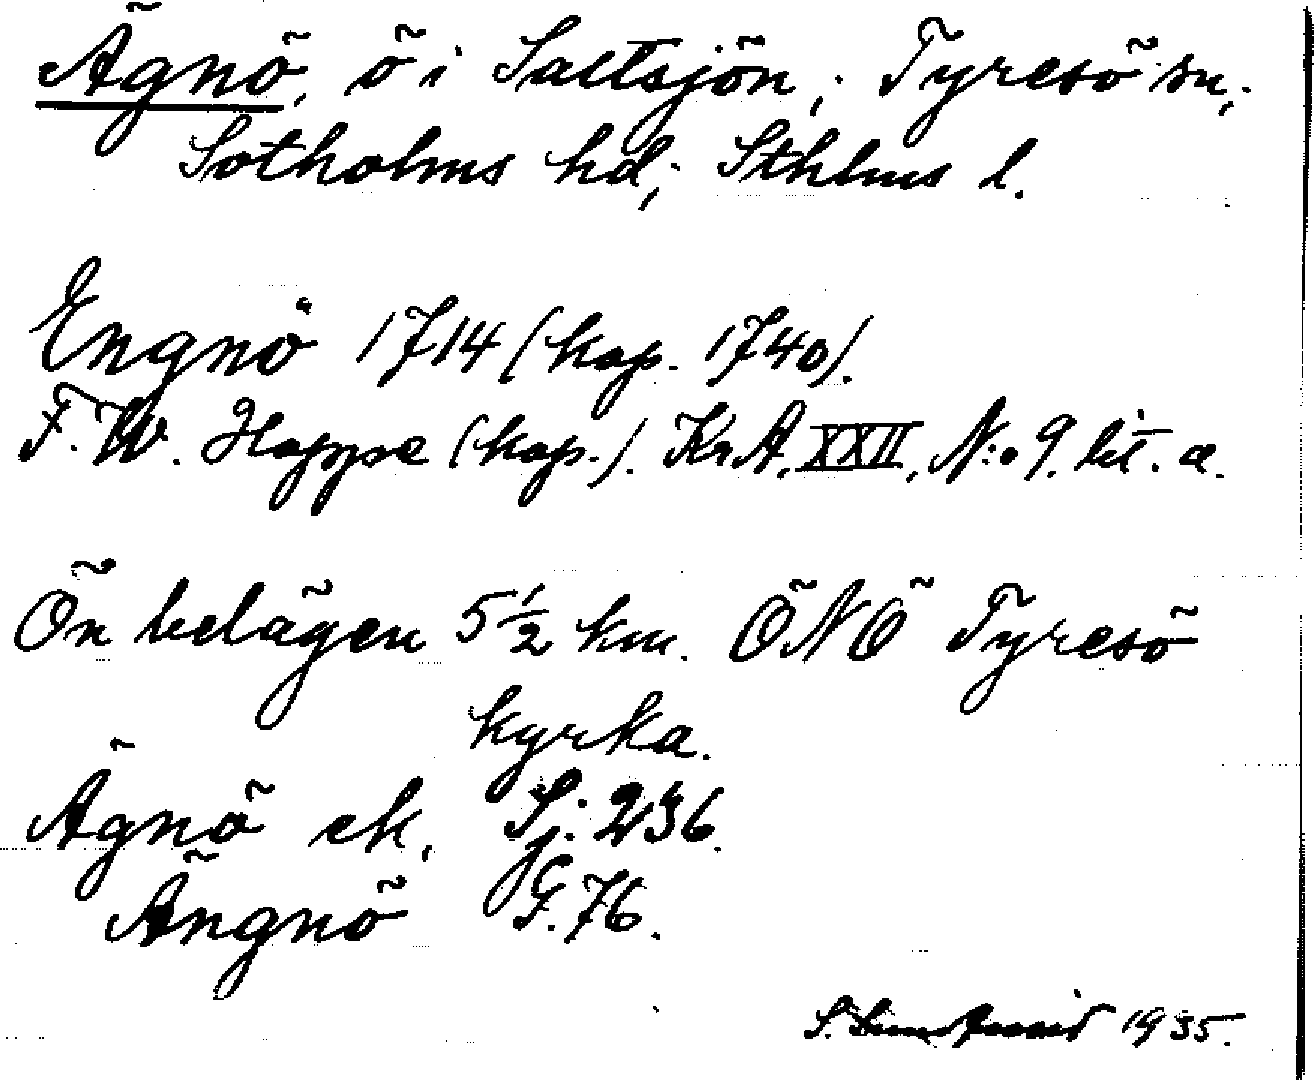 Ägnö, ö i Saltsjön; Tyresö sn,
Sotholms hd; Sthlms l.
Engnö 1714 (kop. 1740).
F. W. Hoppe (kop.). KrA, XXII, N:o 9. lit. a.
Ön belägen 5½ km. ÖNÖ Tyresö
kyrka.
Ägnö ek. Sj: 236.
Ängnö G. 76.
S. 1935.